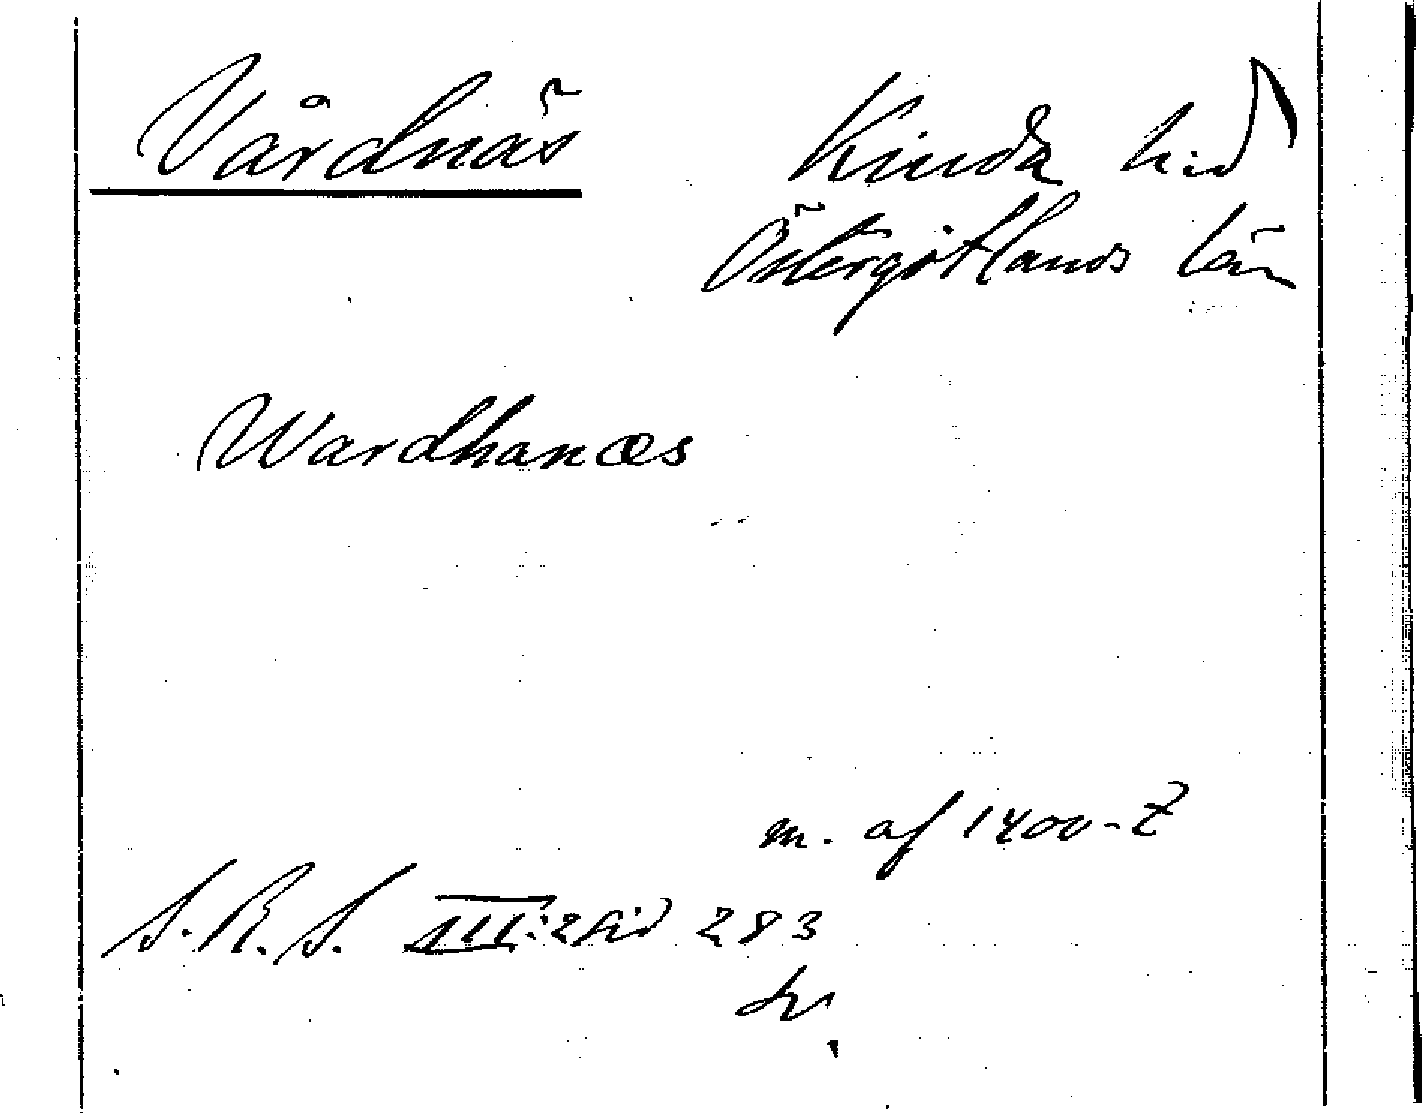 Vårdnäs
Kinda hd
Östergötlands län
Wardhanæs
m. af 1400-t
S.R.S. III:2 sid 283
dr